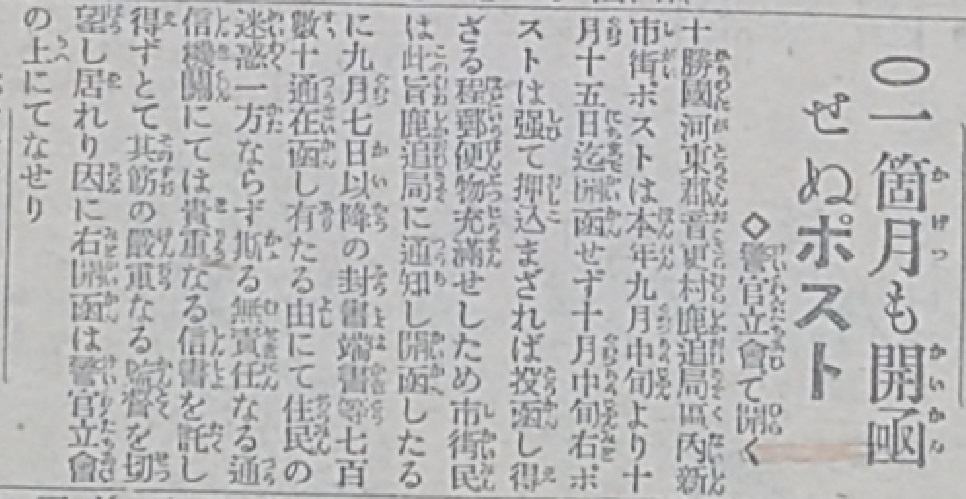 〇一箇月も開凾
せぬポスト
◇警官立會て開く
十勝國河東郡音更村鹿追局區內新
市街ポストは本年九月中旬より十
月十五日迄開函せず十月中旬右ポ
ストは强て押込まざれば投函し得
ざる程郵便物充滿せしため市街民
は此旨鹿追局に通知し開函したる
に九月七日以降の封書端書等七百
數十通在函し有たる由にて住民の
迷惑一方ならず斯る無責任なる通
信機關にては貴重なる信書を託し
得ずとて其筋の嚴重なる監督を切
望し居れり因に右開函は警官立會
の上にてなせり